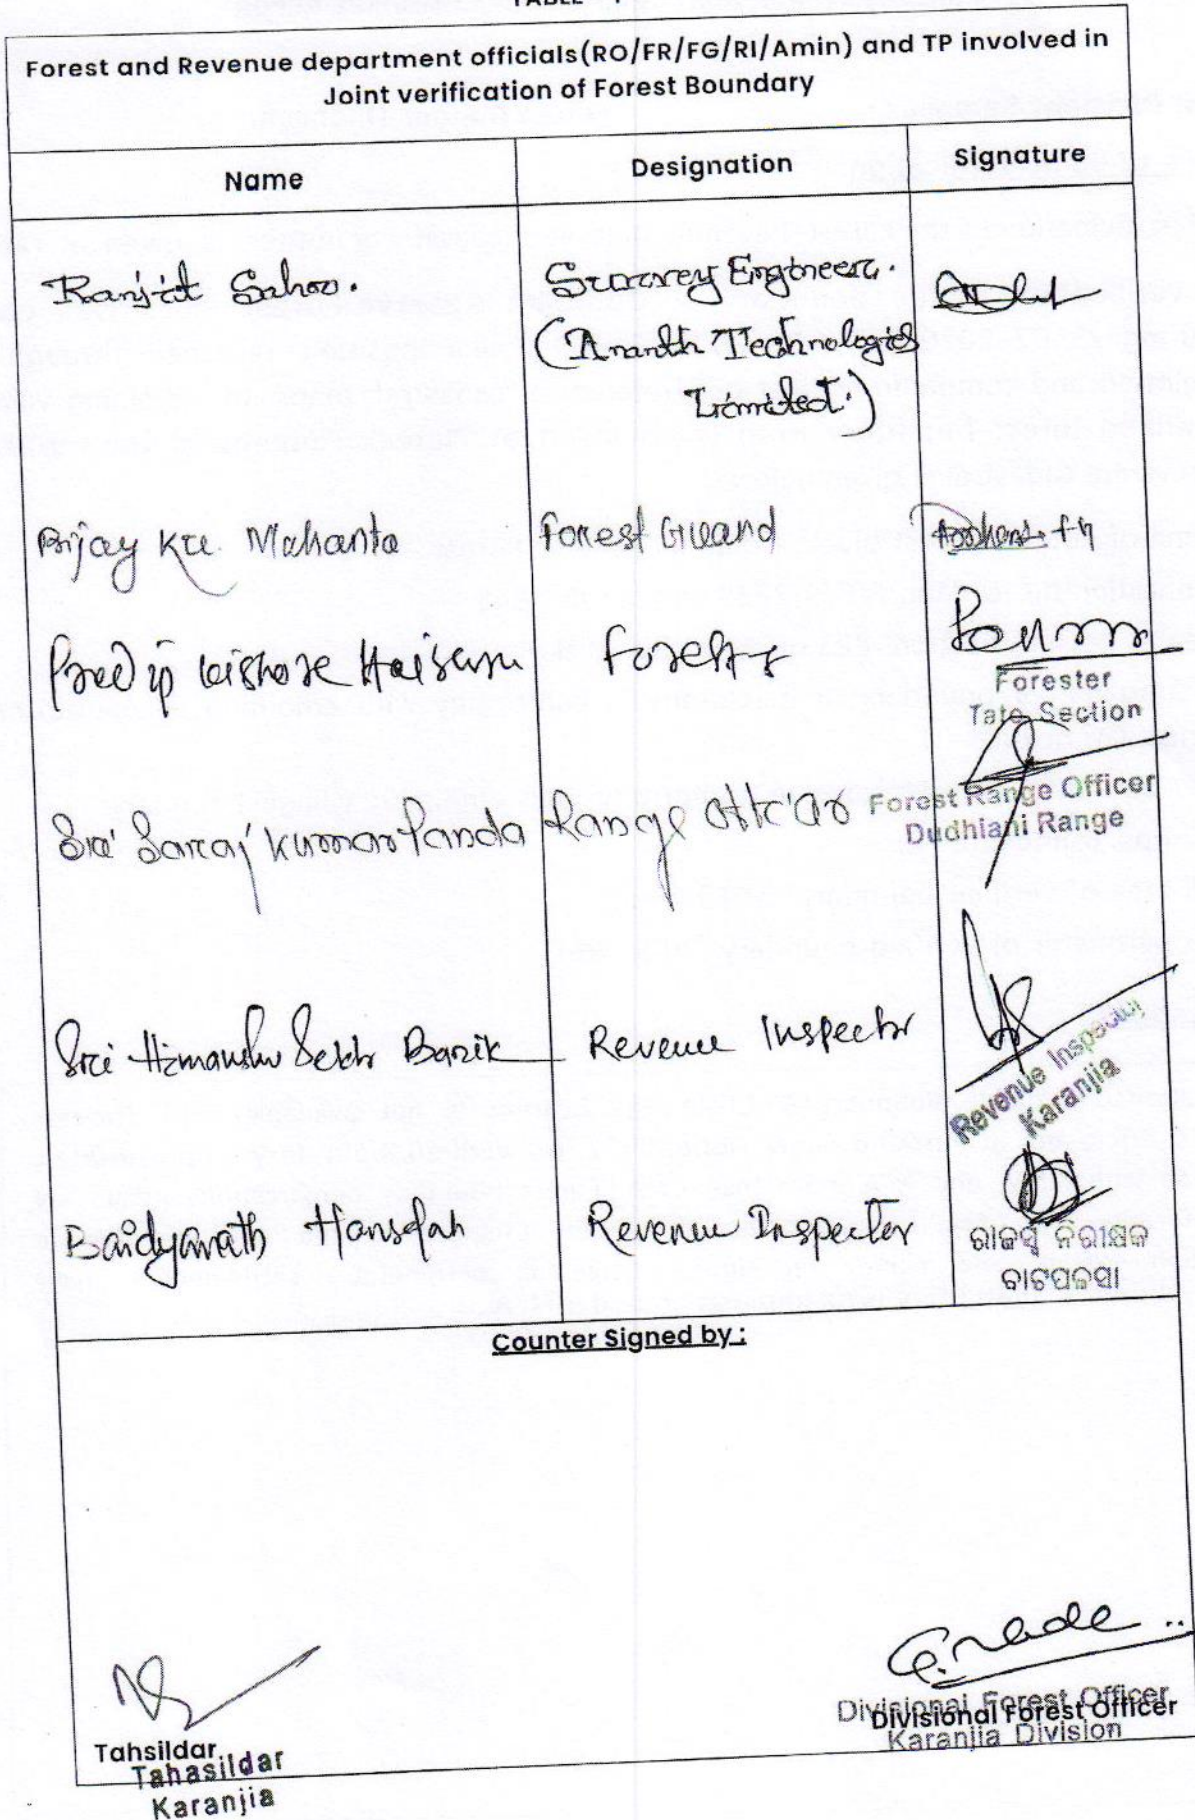 Forest and Revenue department officials(RO/FR/FG/RI/Amin) and TP involved in
Joint verification of Forest Boundary
Name Designation Signature
Ranjit Sahoo. Survey Engineer.
(Ananth Technologies
Limited.)
Bijay Ku. Mahanta Forest Guard
Pradip kishore Forester
Forester
Tato Section
Sri Saroj Kumar Panda Range Officer
Forest Range Officer
Dudhiani Range
Sri Himanshu Sekhr Barik Revenue Inspector
Revenue Inspector
Karanjia
Baidyanath Hansdah Revenue Inspector
ରାଜସ୍ୱ ନିରୀକ୍ଷକ
ବାଟପଳସା
Counter Signed by :
Divisional Forest Officer
Divisional Forest Officer
Karanjia Division
Tahsildar
Tahasildar
Karanjia